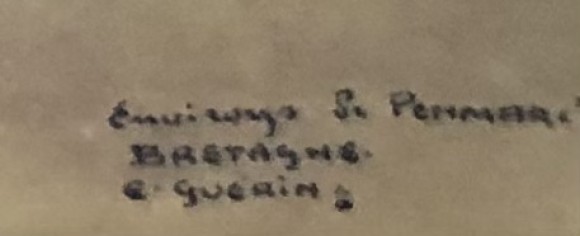 Environs de PENMAR
BRETAGNE.
E. GUERIN